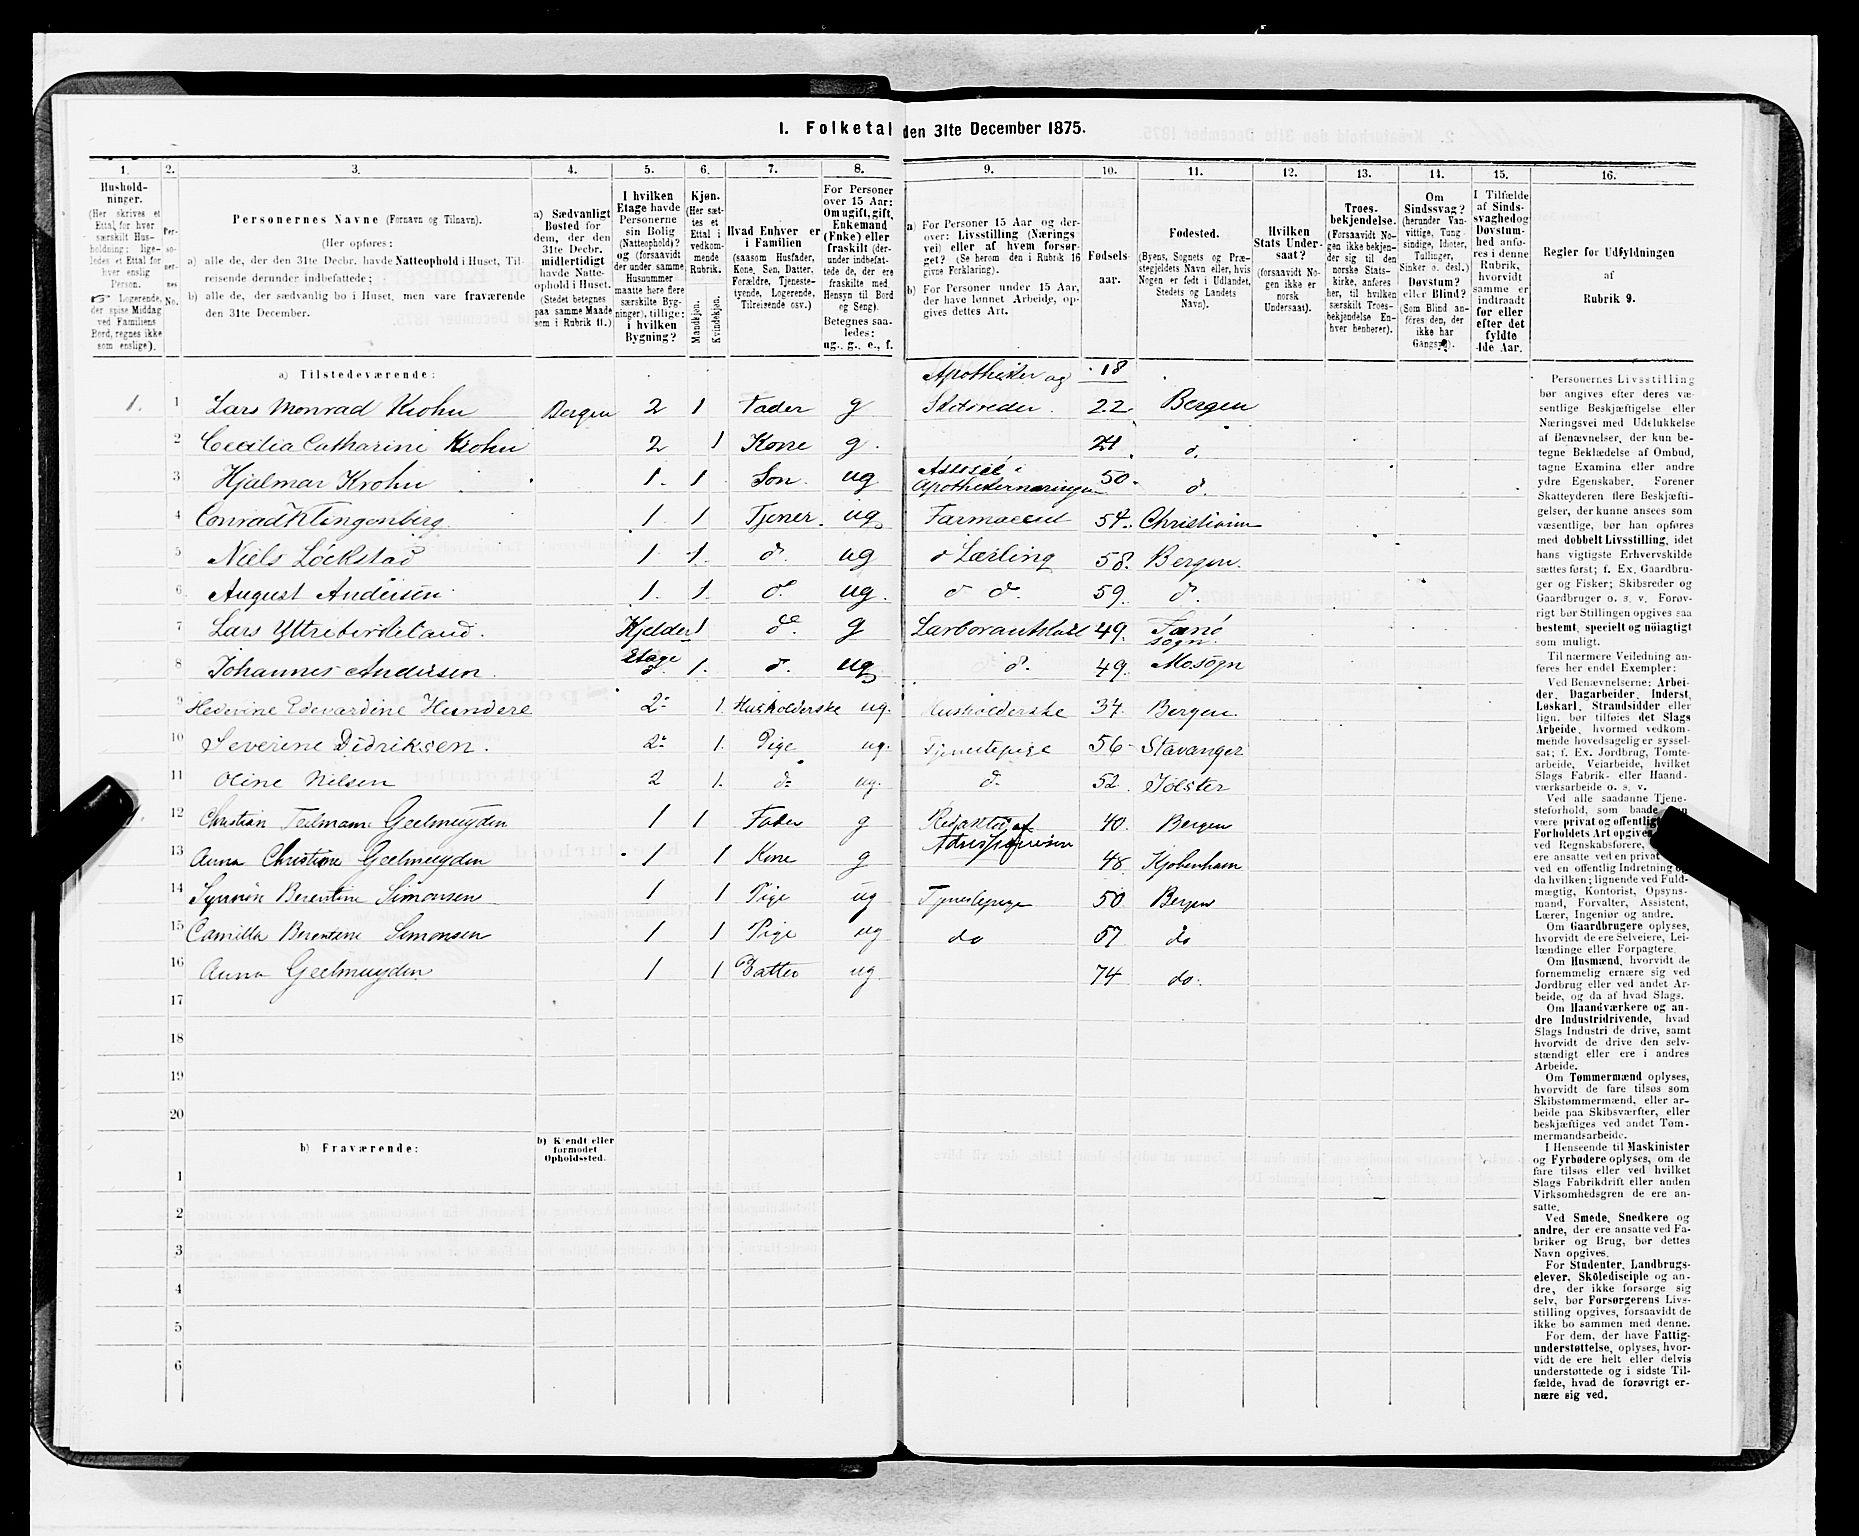 1. Folketal den 31te December 1875.
1. 2. 3. 4. 5. 6. 7. 8. 9. 10. 11. 12. 13. 14. 15. 16.
Hushold-
ninger.
(Her skrives et
Ettal for hver
særskilt Hus-
holdning; lige-
ledes et Ettal for
hver enslig
Person.
☞ Logerende,
der spise Middag
ved Familiens
Bord, regnes ikke
som enslige).
Per-
so-
ner-
nes
No.
Personernes Navne (Fornavn og Tilnavn).
(Her opføres:
a) alle de, der den 31te Decbr. havde Natteophold i Huset, Til-
reisende derunder indbefattede;
b) alle de, der sædvanlig bo i Huset, men vare fraværende
den 31te December.
a) Sædvanligt
Bosted for
dem, der den
31te Decbr.
midlertidigt
havde Natte-
ophold i Huset.
(Stedet betegnes
paa samme Maade
som i Rubrik 11.)
I hvilken
Etage havde
Personerne
sin Bolig
(Natteophold)?
og (forsaavidt
der under samme
Husnummer
maatte høre flere
særskilte Byg-
ninger), tillige:
i hvilken
Bygning?
Kjøn.
(Her sæt-
tes et
Ettal i
vedkom-
mende
Rubrik.
Mandkjøn.
Kvindekjøn.
Hvad Enhver er
i Familien
(saasom Husfader,
Kone, Søn, Datter,
Forældre, Tjeneste-
tyende, Logerende,
Tilreisende osv.)
For Personer
over 15 Aar:
Om ugift, gift,
Enkemand
(Enke) eller
fraskilt (der-
under indbefat-
tede de, der ere
fraskilte med
Hensyn til Bord
og Seng).
Betegnes saa-
ledes:
ug., g., e., f.
a) For Personer 15 Aar og der-
over: Livsstilling (Nærings
vei) eller af hvem forsør-
get? (Se herom den i Rubrik 16
givne Forklaring).
b) For Personer under 15 Aar,
der have lønnet Arbeide, op-
gives dettes Art.
Fødsels-
aar.
Fødested.
(Byens, Sognets og Præ-
stegjeldets Navn eller, hvis
Nogen er født i Udlandet,
Stedets og Landets
Navn).
Hvilken
Stats Under-
saat?
(forsaavidt No-
gen ikke er
norsk
Undersaat).
Troes-
bekjendelse.
(Forsaavidt No-
gen ikke bekjen-
der sig til den
norske Stats-
kirke, anføres
her, til hvilken
særskilt Troes-
bekjendelse En-
hver henhører).
Om
Sindssvag?
(herunder Van-
vittige, Tung-
sindige, Idioter,
Tullinger,
Sinker o. desl.)
Døvstum?
eller Blind?
(Som Blind an-
føres den, der
ikke har
Gangsyn).
I Tilfælde
af Sinds-
svaghed og
Døvstum-
hed anfø-
res i denne
Rubrik,
hvorvidt
samme er
indtraadt
før eller
efter det
fyldte
4de Aar.
Regler for Udfyldningen
af
Rubrik 9.
a) Tilstedeværende:
Apotheker og 18
1. 1 Lars Monrad Krohn Bergen 2 1 Fader g Skibsreder. 22. Bergen
2 Cecilia Catharine Krohn 2 1 Kone g. 21 do.
3 Hjalmar Krohn 1. 1 Søn. ug Apothekernæringen 50. do.
4 Conrad Klingenberg. 1. 1 Tjener. ug 54. Christiania
5 Niels Löckstad 1 1. do. ug do Lærling 58. Bergen.
6 August Andersen 1. 1. do. ug. do do. 59. do.
7 Lars Kjelder 1 do. g 49. sogn.
Etage
8 Johannes Andersen. do. 1. do. ug do. 49.
9 Edevardine 2 1. Husholderske ug. Husholderske 34. Bergen.
10 Severine Didriksen. 2 1. Pige ug. Tjenestepige 56 Stavanger
11 Oline Nilsen 2 1. do ug. do. 52. Jölster
12 Christian Geelmuyden 1 1 Fader g Redaktør af 40. Bergen
13 Anna Christine Geelmuyden 1 1 Kone g 48. Kjøbenhavn
14 Berentine Simonsen 1 1 Pige ug Tjenestepige 50. Bergen
15 Camilla Berentine Simonsen 1 1 Pige ug do 57. do
16 Anna Geelmuyden. 1 1 Datter ug. 74 do.
17
18
19
20
b) Fraværende:
b) Kjendt eller
formodet
Opholdssted.
1
2
3
4
5
6
Personernes Livsstilling
bør angives efter deres væ-
sentlige Beskjæftigelse eller
Næringsvei med Udelukkelse
af Benævnelser, der kun be-
tegne Beklædelse af Ombud,
tagne Examina eller andre
ydre Egenskaber. Forener
Skatteyderen flere Beskjæfti-
gelser, der kunne ansees som
væsentlige, bør han opføres
med dobbelt Livsstilling, idet
hans vigtigste Erhvervskilde
sættes først; f. Ex. Gaardbru-
ger og Fisker; Skibsreder og
Gaardbruger o. s. v. Forøv-
rigt bør Stillingen opgives saa
bestemt, specielt og nöiagtigt
som muligt.
Til nærmere Veiledning an-
føres her endel Exempler:
Ved Benævnelserne: Arbei-
der, Dagarbeider, Inderst,
Løskarl, Strandsidder eller
lign. bør tilføies det Slags
Arbeide, hvormed vedkom-
mende hovedsagelig er syssel-
sat; f. Ex. Jordbrug, Tomte-
arbeide, Veiarbeide, hvilket
Slags Fabrik- eller Haand-
værksarbeide o. s. v.
Ved alle saadanne Tjene-
steforhold, som baade kan
være privat og offentlig
Forholdets Art opgives
ved Regnskabsførere,
ere ansatte ved en privat
ved en offentlig Indretning og
da hvilken; lignende ved Fuld-
mægtig, Kontorist, Opsyns-
mand, Forvalter, Assistent,
Lærer, Ingeniør og andre.
Om Gaardbrugere oplyses,
hvorvidt de ere Selveiere, Lei-
lændinge eller Forpagtere.
Om Husmænd, hvorvidt de
fornemmelig ernære sig ved
Jordbrug eller ved andet Ar-
beide, og da af hvad Slags.
Om Haandværkere og an-
dre Industridrivende, hvad
Slags Industri de drive, samt
hvorvidt de drive den selv-
stændigt eller ere i andres
Arbeide.
Om Tømmermænd oplyses,
hvorvidt de fare tilsøs som
Skibstømmermænd, eller ar-
beide paa Skibsværfter, eller
beskjæftiges ved andet Tøm-
mermandsarbeide.
I Henseende til Maskinister
og Fyrbødere oplyses, om de
fare tilsøs eller ved hvilket
Slags Fabrikdrift eller anden
Virksomhedsgren de ere an-
satte.
Ved Smede, Snedkere og
andre, der ere ansatte ved Fa-
briker og Brug, bør dettes
Navn opgives.
For Studenter, Landbrugs-
elever, Skoledisciple og an-
dre, der ikke forsørge sig
selv, bør Forsørgerens Livs-
stilling opgives, forsaavidt de
ikke bo sammen med denne.
For dem, der have Fattig-
understøttelse, oplyses, hvor-
vidt de ere helt eller delvis
understøttede og i sidste Til-
fælde, hvad de forøvrigt er-
nære sig ved.